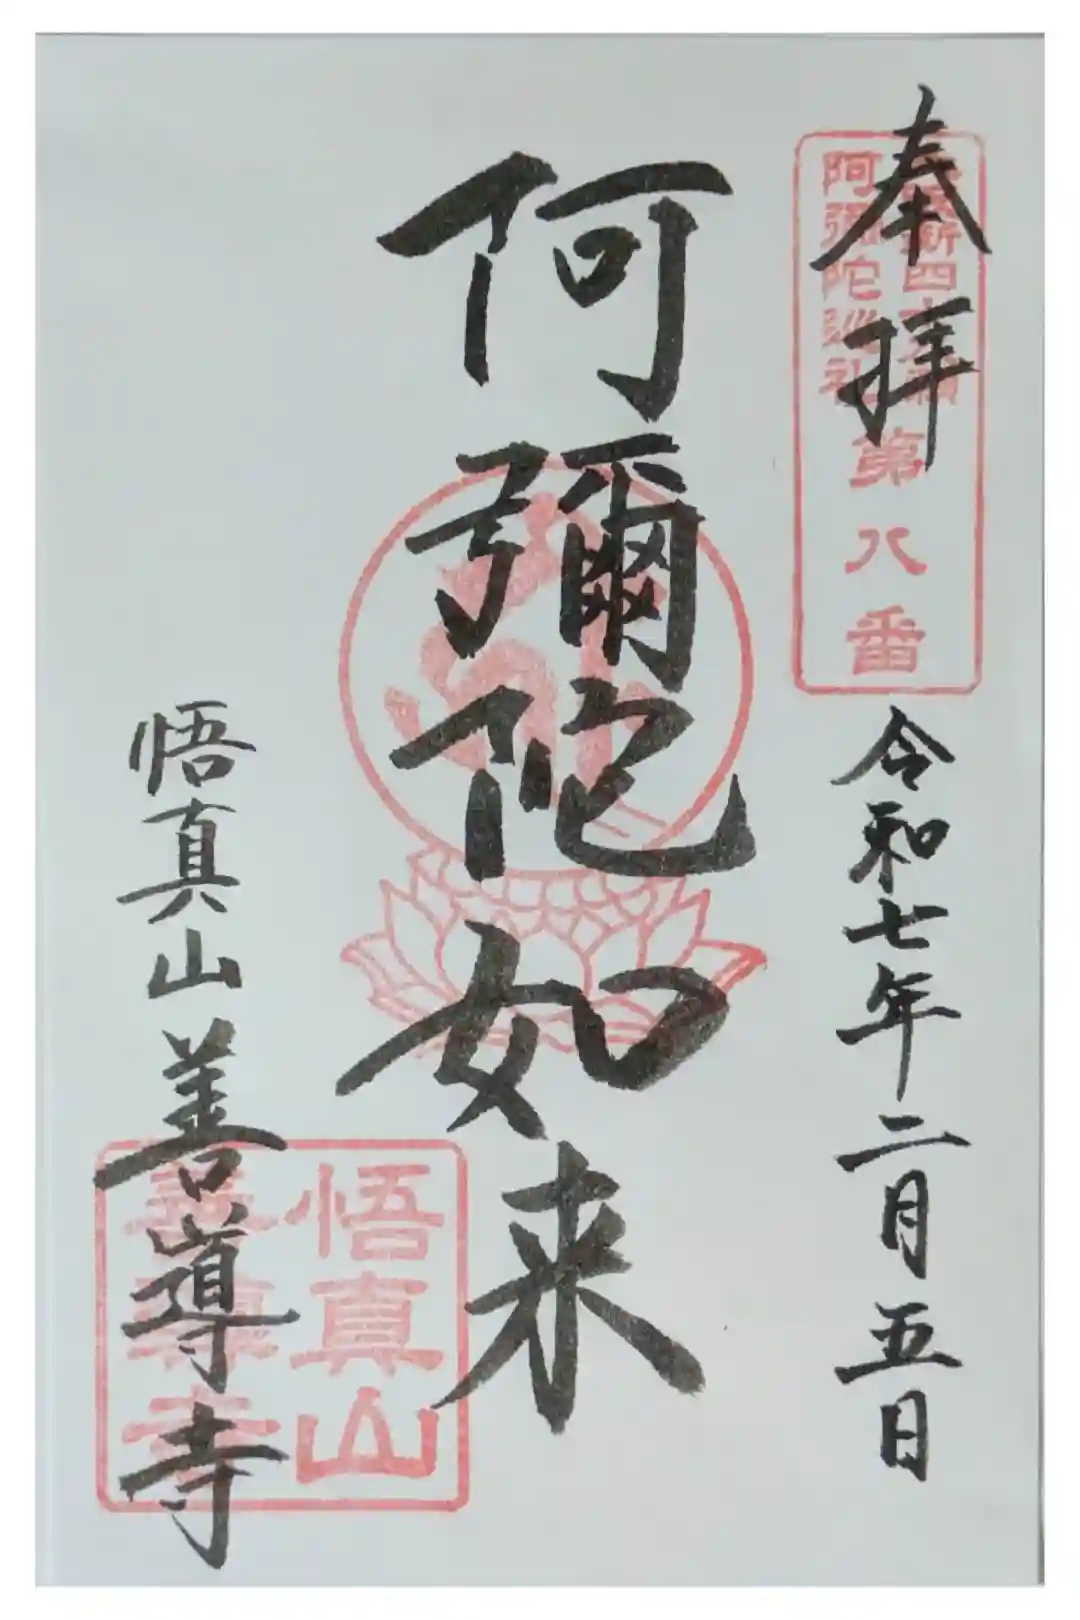 奉拝
令和七年二月五日
新四
阿彌陀巡礼
第八番
阿彌陀如来
悟真山善導寺
悟真山
善導寺